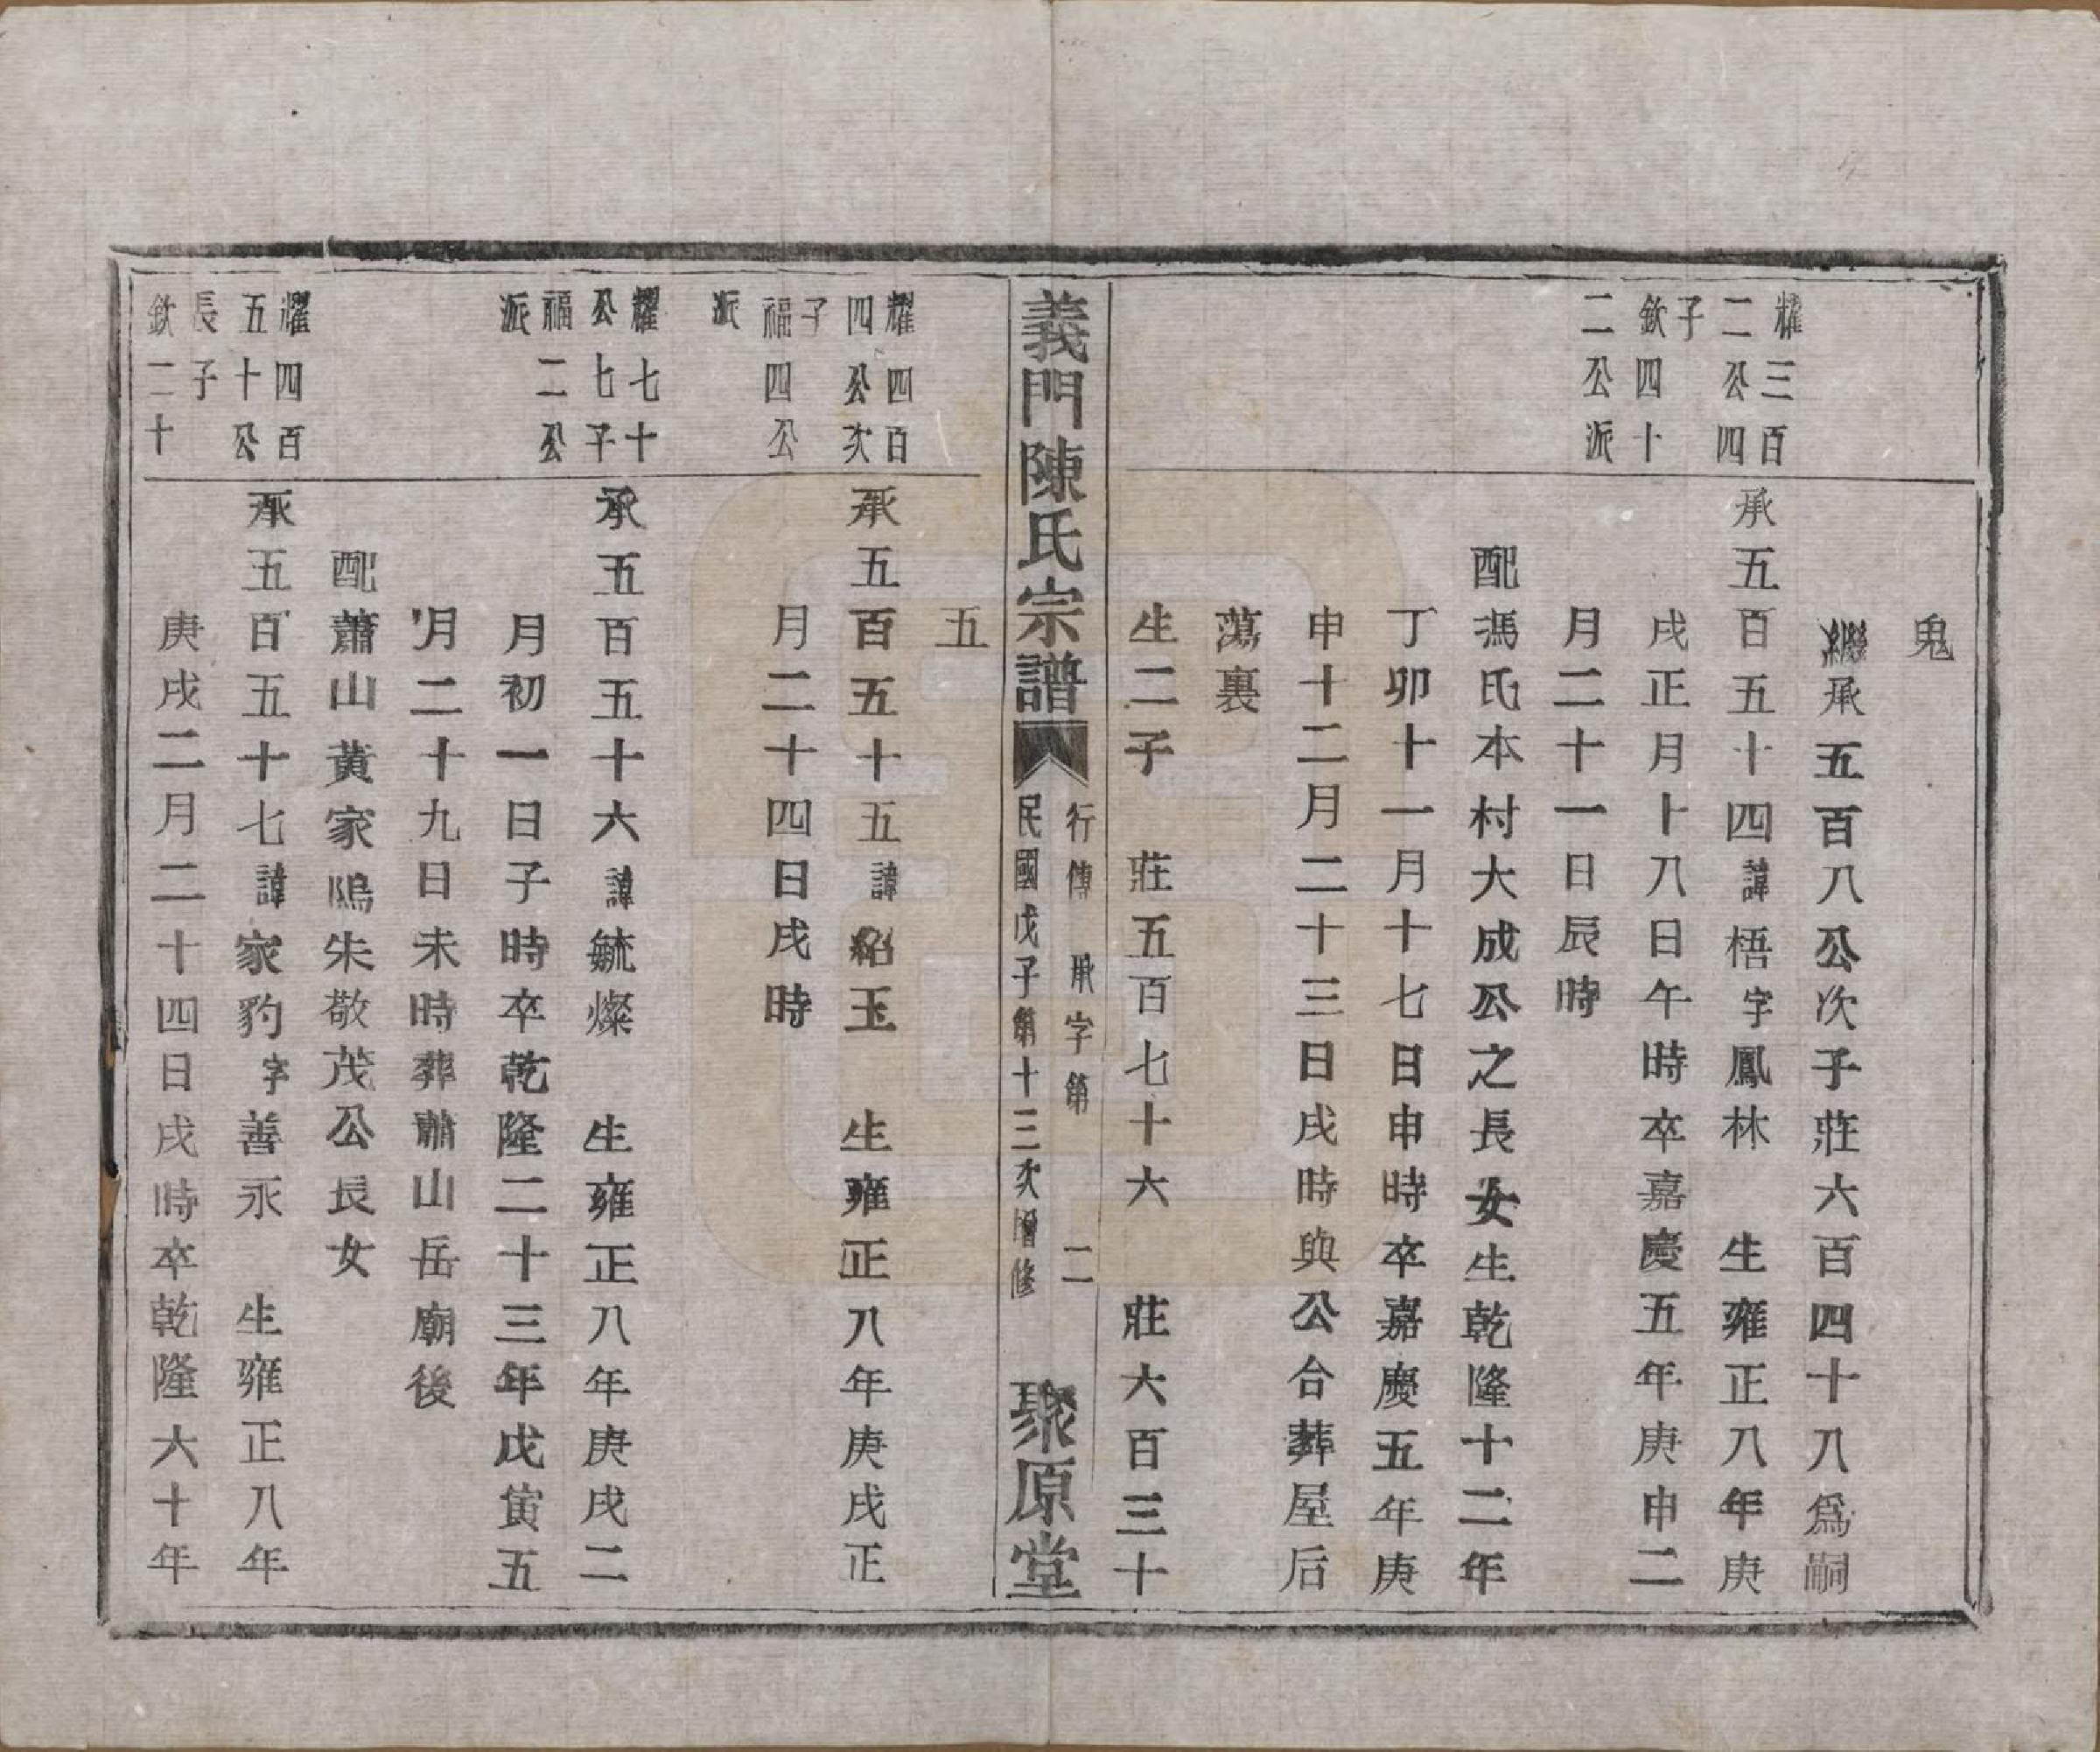 鬼
繼承五百八公次子莊六百四十八爲嗣
耀三百
二公四
子
欽四十
二公派
承五百五十四諱梧字鳳林 生雍正八年庚
戌正月十八日午時卒嘉慶五年庚申二
月二十一日辰時
配馮氏本村大成公之長女生乾隆十二年
丁卯十一月十七日申時卒嘉慶五年庚
申十二月二十三日戌時與公合葬屋后
蕩裏
生二子 莊五百七十六 莊六百三十
義門陳氏宗譜
行傳 承字第 二
民國戊子第十三次增修
聚原堂
五
耀四百
四公次
子
福四公
派
承五百五十五諱紹玉 生雍正八年庚戌正
月二十四日戌時
耀七十
公七子
福二公
派
承五百五十六諱毓燦 生雍正八年庚戌二
月初一日子時卒乾隆二十三年戊寅五
月二十九日未時葬蕭山岳廟後
配蕭山黃家鴫朱敬茂公長女
耀四百
五十公
長子
欽二十
承五百五十七諱家豹字善永 生雍正八年
庚戌二月二十四日戌時卒乾隆六十年